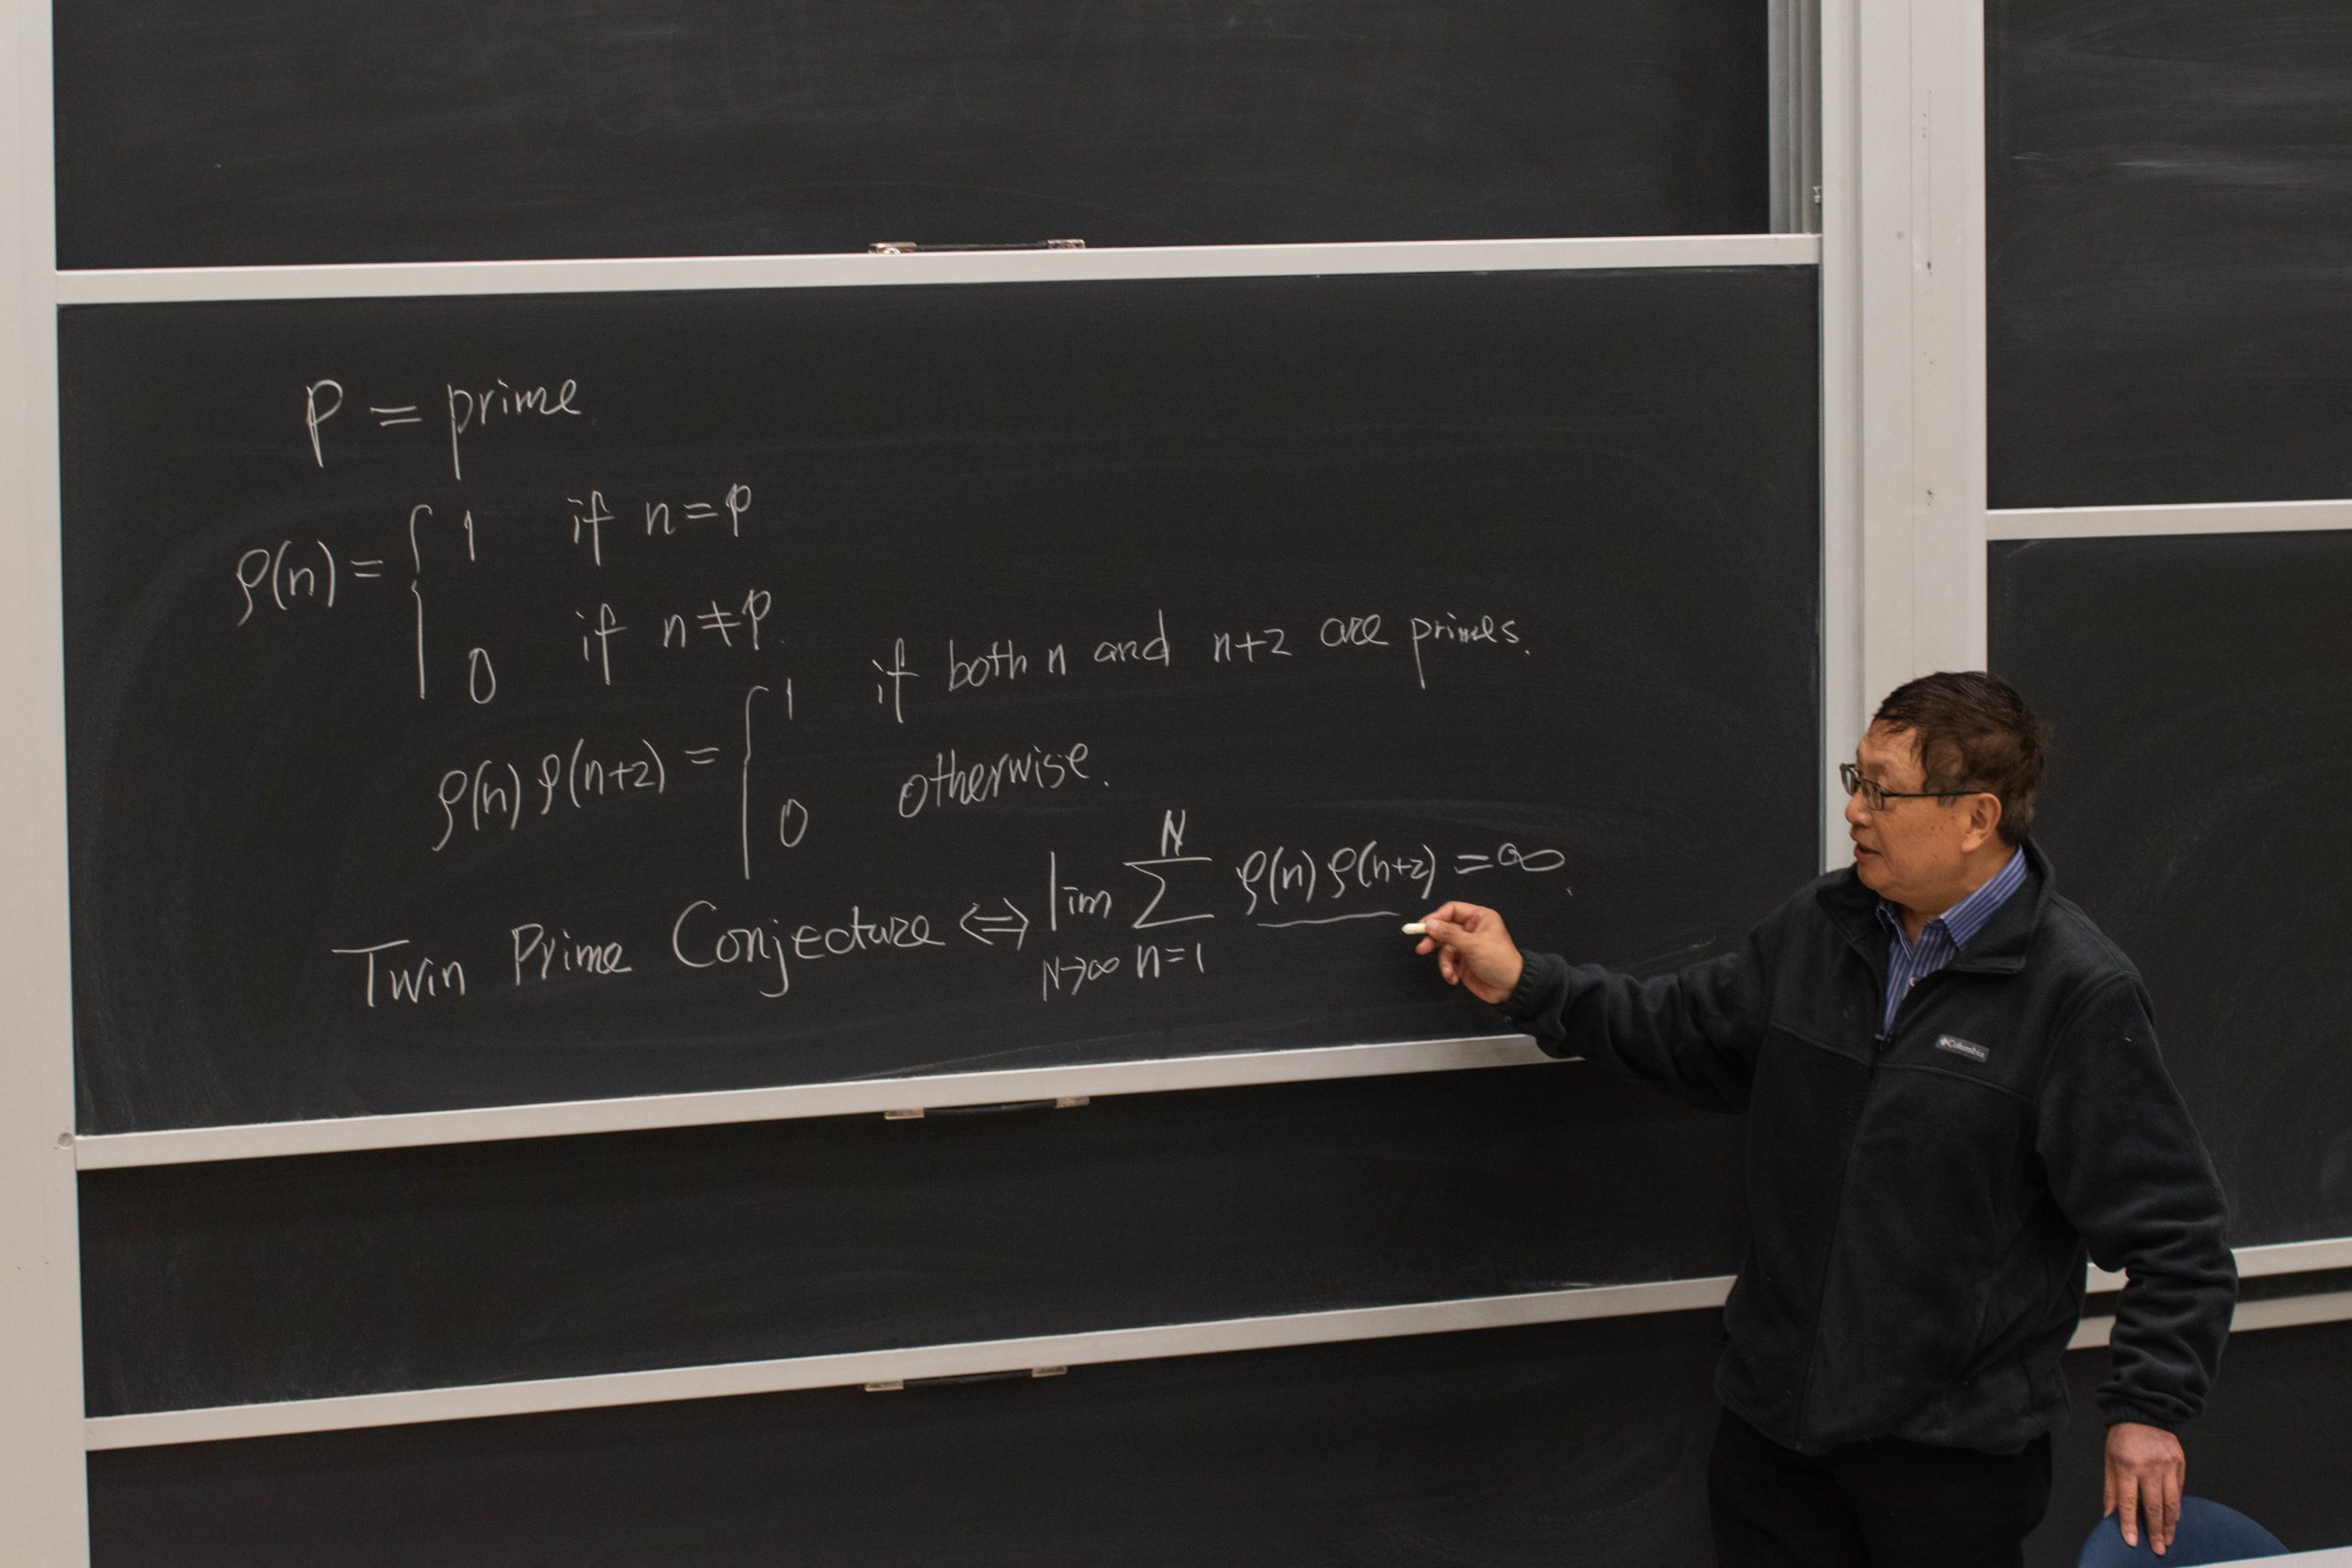 P = prime
ρ(n) = { 1 if n = p
0 if n ≠ p.
ρ(n) ρ(n+2) = { 1 if both n and n+2 are primes.
0 otherwise.
Twin Prime Conjecture ⇔ lim N→∞ ∑ n=1 N ρ(n) ρ(n+2) = ∞.
Columbia